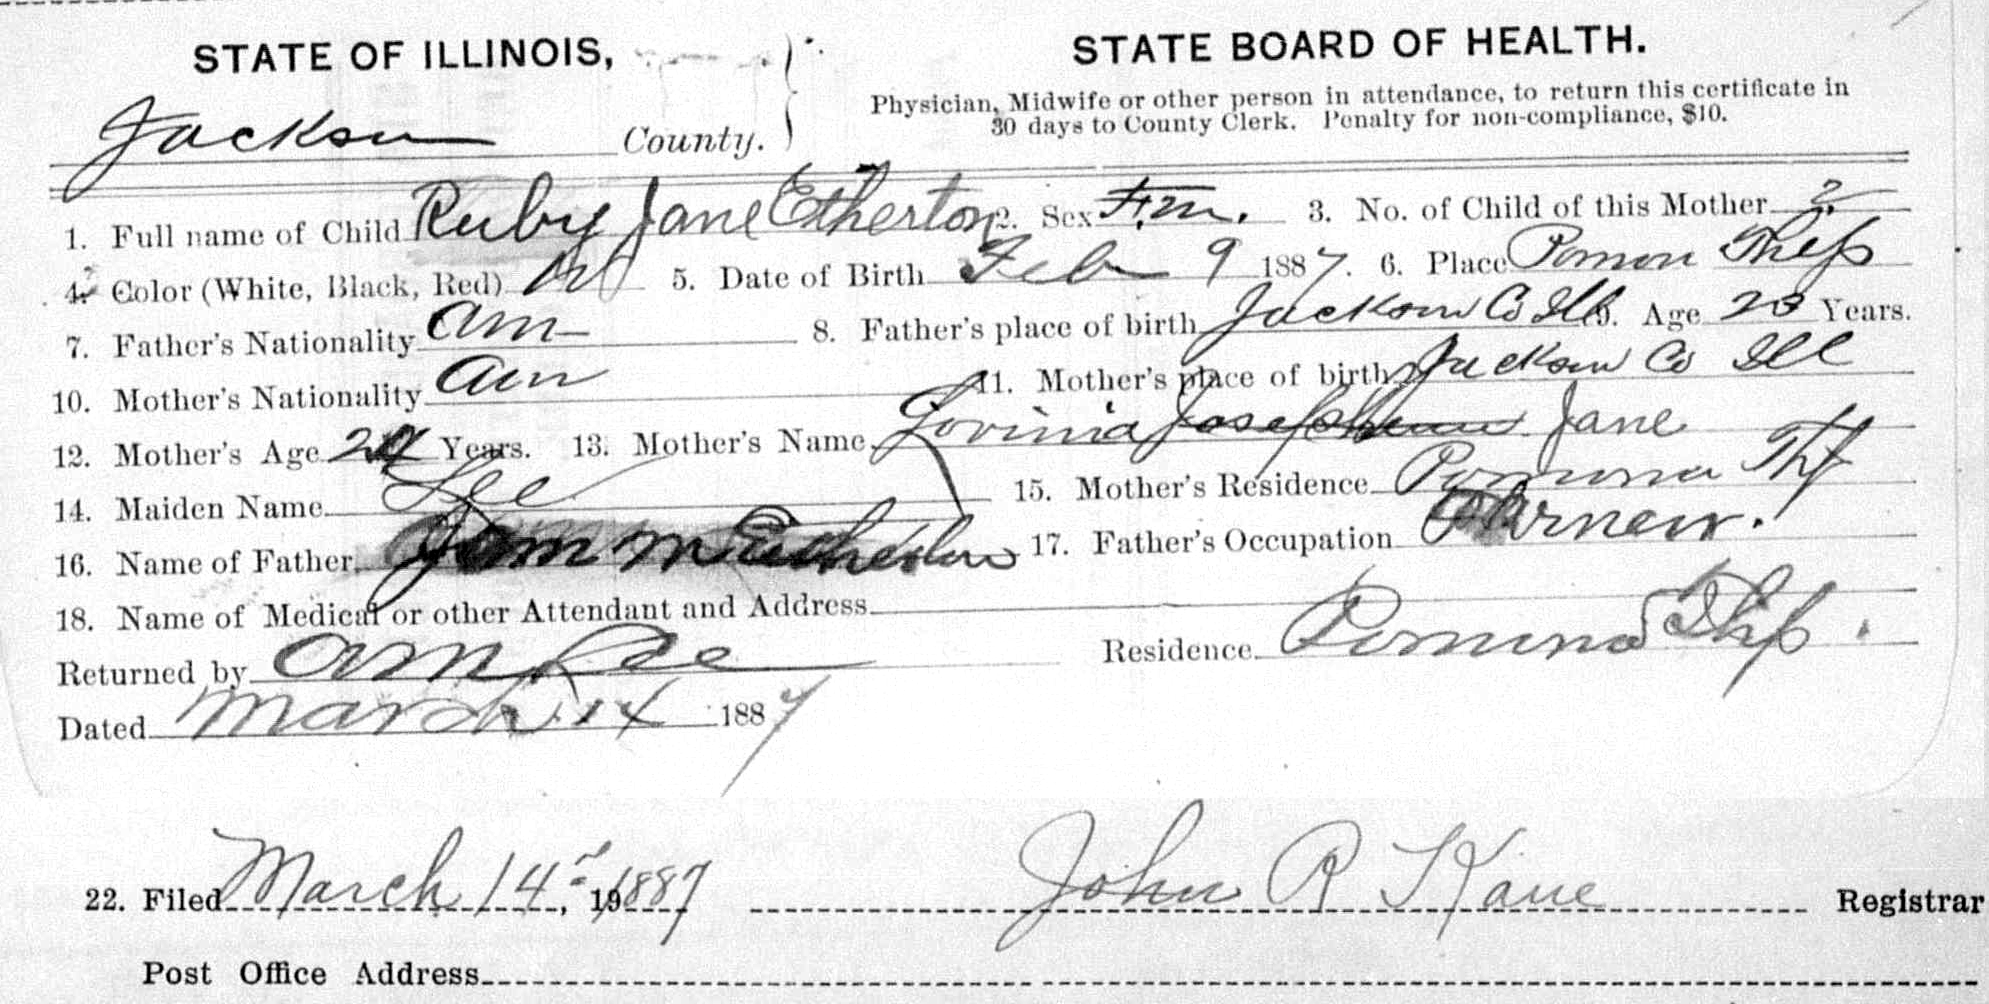 STATE OF ILLINOIS,
Jackson County.
STATE BOARD OF HEALTH.
Physician, Midwife or other person in attendance, to return this certificate in
30 days to County Clerk. Penalty for non-compliance, $10.
1. Full name of Child Ruby Jane Etherton 2. Sex Fem. 3. No. of Child of this Mother 2
4. Color (White, Black, Red) 5. Date of Birth Feb 9 1887. 6. Place Pomon
7. Father's Nationality Am 8. Father's place of birth Jackson Co Ills 9. Age Years.
10. Mother's Nationality Am 11. Mother's place of birth Jackson Co Ill
12. Mother's Age Years. 13. Mother's Name Lovinia Jane
14. Maiden Name Lee 15. Mother's Residence Pomona
16. Name of Father M Etherton 17. Father's Occupation
18. Name of Medical or other Attendant and Address
Returned by Am Lee Residence Pomona
Dated March 14 1887
22. Filed March 14 1887 John R Kane Registrar
Post Office Address